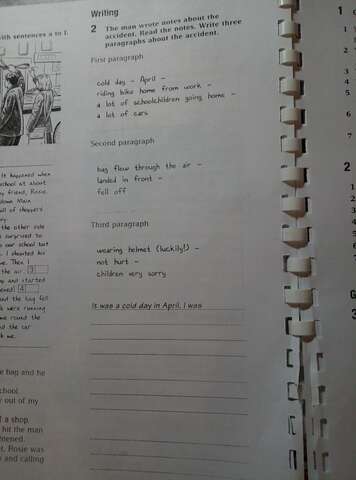 with sentences a to f.
It happened when
school at about
my friend, Rosie
down Main
full of shoppers
the other side
surprised to
our school but
I shouted his
me. Then I
the air 3
up and started
4
and the bag fell
were running
me round the
and the car
me.
e bag and he
school
out of my
f a shop
hit the man
ht. Rosie was
and calling
Writing
2 The man wrote notes about the
accident. Read the notes. Write three
paragraphs about the accident.
First paragraph
cold day – April –
riding bike home from work –
a lot of schoolchildren going home –
a lot of cars
Second paragraph
bag flew through the air –
landed in front –
fell off
Third paragraph
wearing helmet (luckily!) –
not hurt –
children very sorry
It was a cold day in April. I was
1
2
3